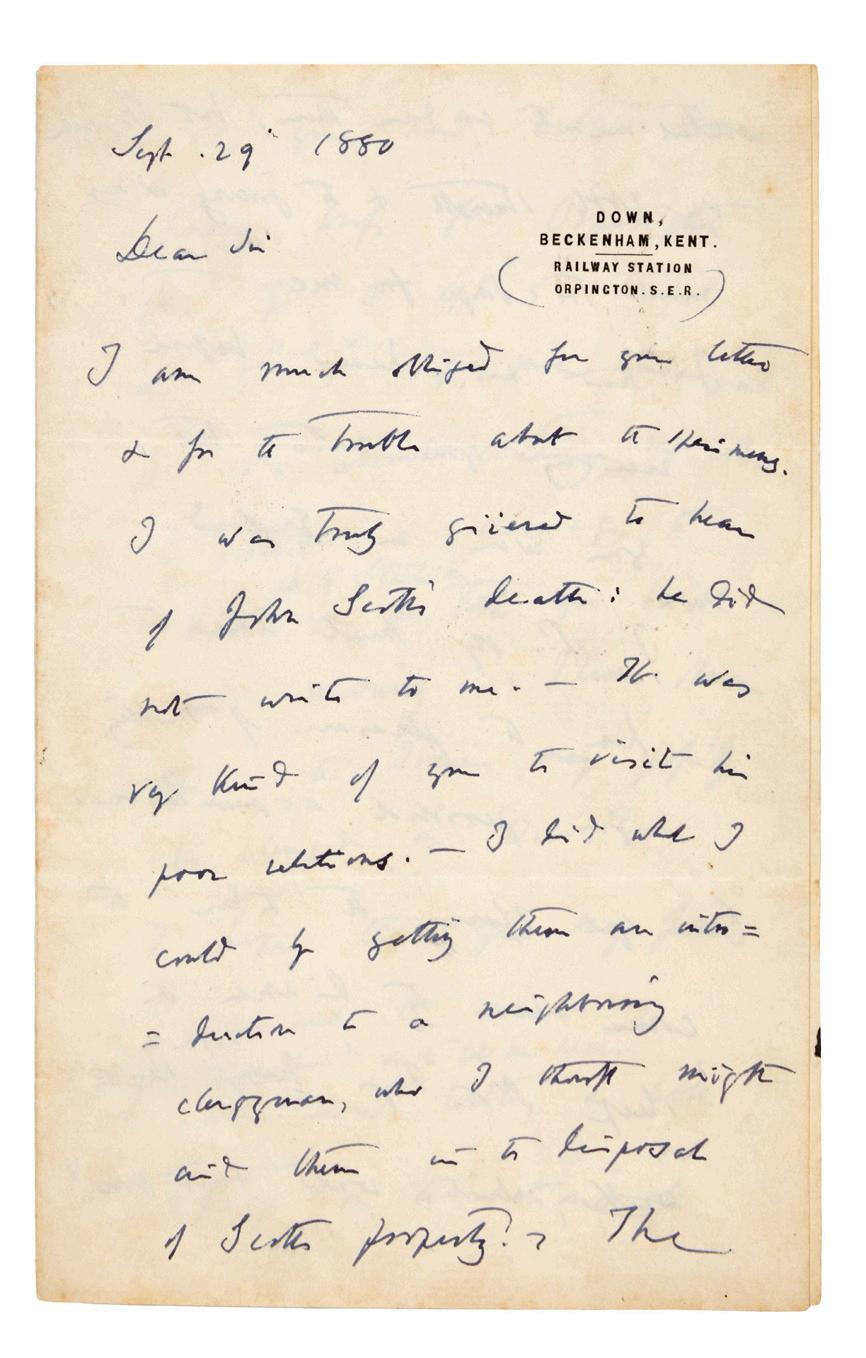 Sept. 29 1880
DOWN,
BECKENHAM, KENT.
RAILWAY STATION
ORPINGTON. S.E.R.
Dear Sir
I am much obliged for your letter
& for the trouble about the specimens.
I was truly grieved to hear
of John Scott's death: he did
not write to me. — It was
very kind of you to visit his
poor relations. — I did what I
could by getting them an intro=
=duction to a neighbouring
clergyman, who I thought might
aid them in the disposal
of Scott's property. The